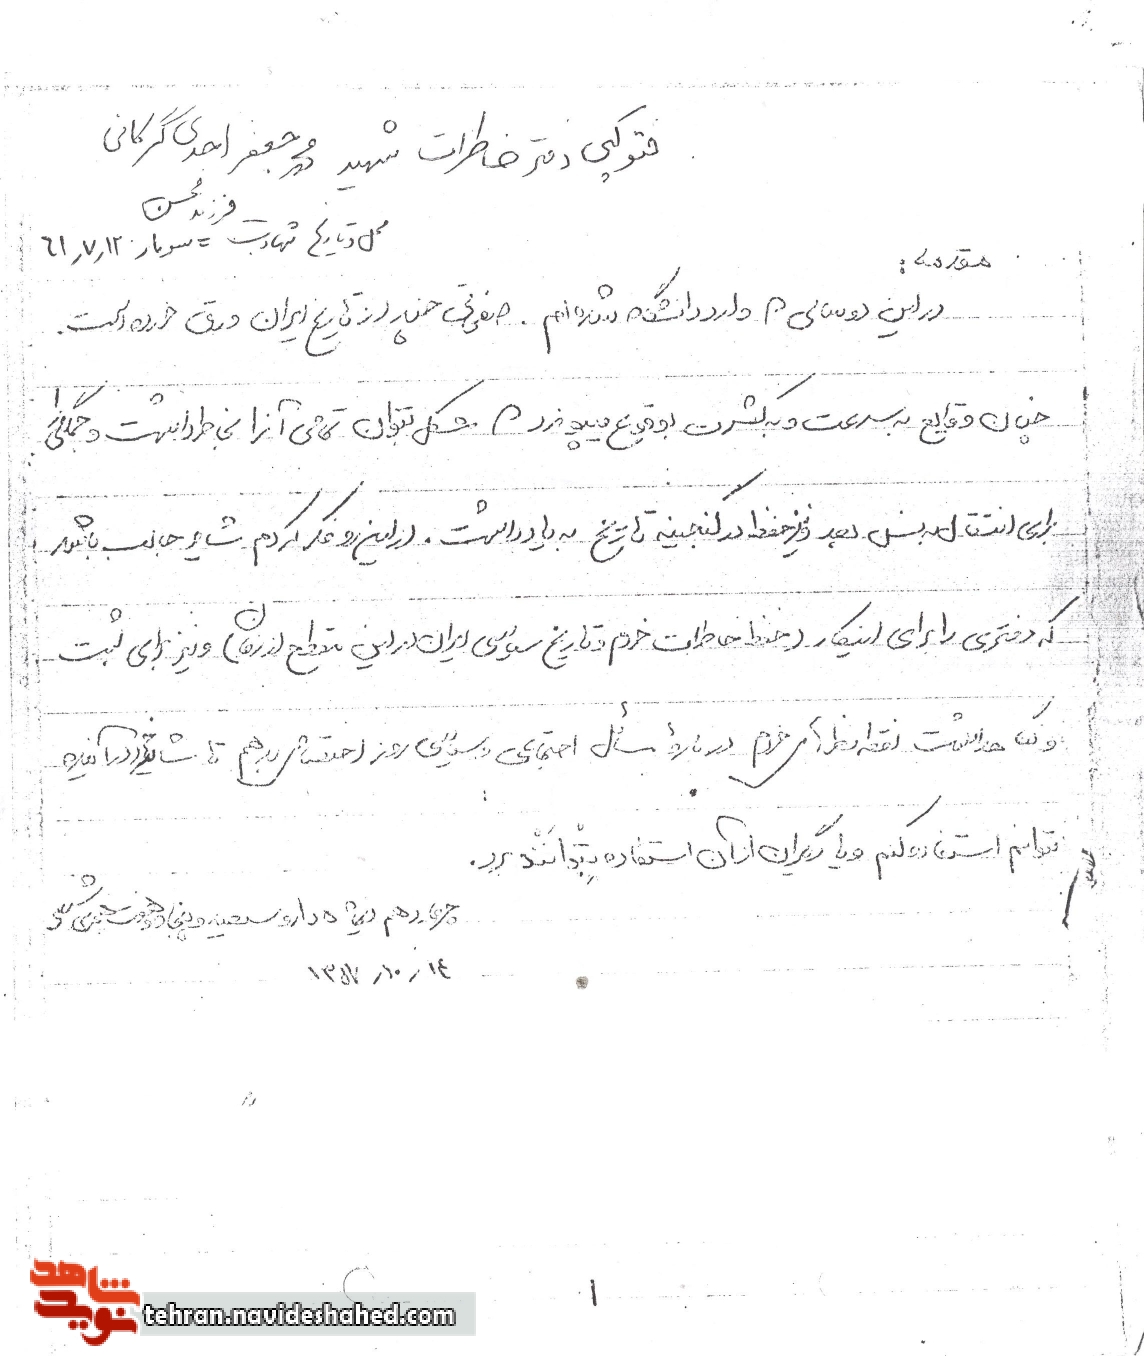 فتوکپی دفتر خاطرات شهید محمد جعفر احمدی گرکانی
فرزند محسن
محل و تاریخ شهادت = سومار ۶۱٫۷٫۱۲
مقدمه :
در این دوسالی که وارد دانشگاه شده‌ام . صفحاتی چند از تاریخ ایران ورق خورده است .
چنان وقایع به سرعت و به کثرت بوقوع میپیوندد که مشکل بتوان تمامی آنرا بخاطر داشت و همگی
برای انتقال به نسل بعد و نیز حفظ در گنجینه تاریخ به یاد داشت . در این رو فکر کردم شاید جالب باشد
که دفتری را برای اینکار (حفظ خاطرات خودم و تاریخ سیاسی ایران در این مقطع از زمان) و نیز برای ثبت
و نگاهداشت نقطه نظرهای خودم درباره مسائل اجتماعی و سیاسی روز اختصاص بدهم تا شاید در آینده
بتوانم استفاده کنم و یا دیگران از آن استفاده بتوانند برد .
چهاردهم دیماه هزار و سیصد و پنجاه و هفت هجری شمسی
۱۳۵۷٫۱۰٫۱۴
۱
شاهد
نوید
tehran.navideshahed.com